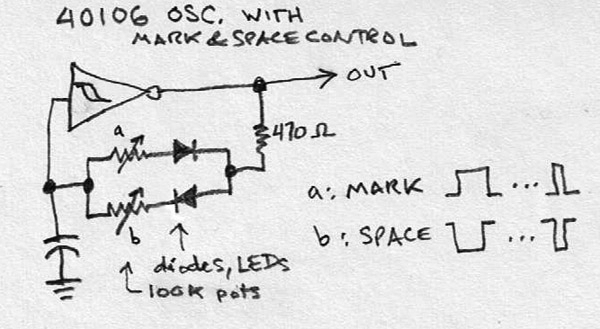 40106 OSC. WITH
MARK & SPACE CONTROL
OUT
470Ω
a
a: MARK ...
b
b: SPACE ...
diodes, LEDs
100K pots